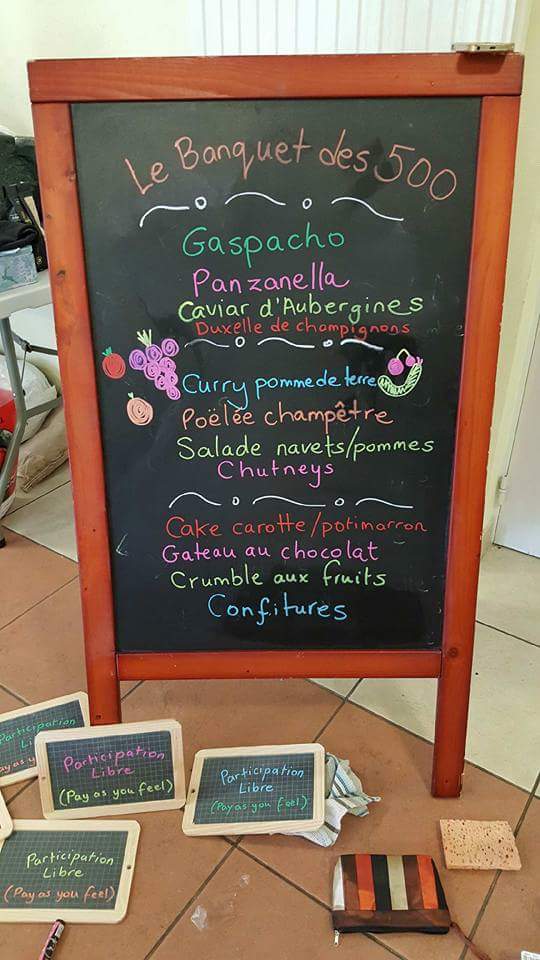 Le Banquet des 500
Gaspacho
Panzanella
Caviar d'Aubergines
Duxelle de champignons
Curry pomme de terre
Poëlée champêtre
Salade navets/pommes
Chutneys
Cake carotte/potimarron
Gateau au chocolat
Crumble aux fruits
Confitures
Participation
Li
ay as y
Participation
Libre
(Pay as you feel)
Participation
Libre
(Pay as you feel)
Participation
Libre
(Pay as you feel)